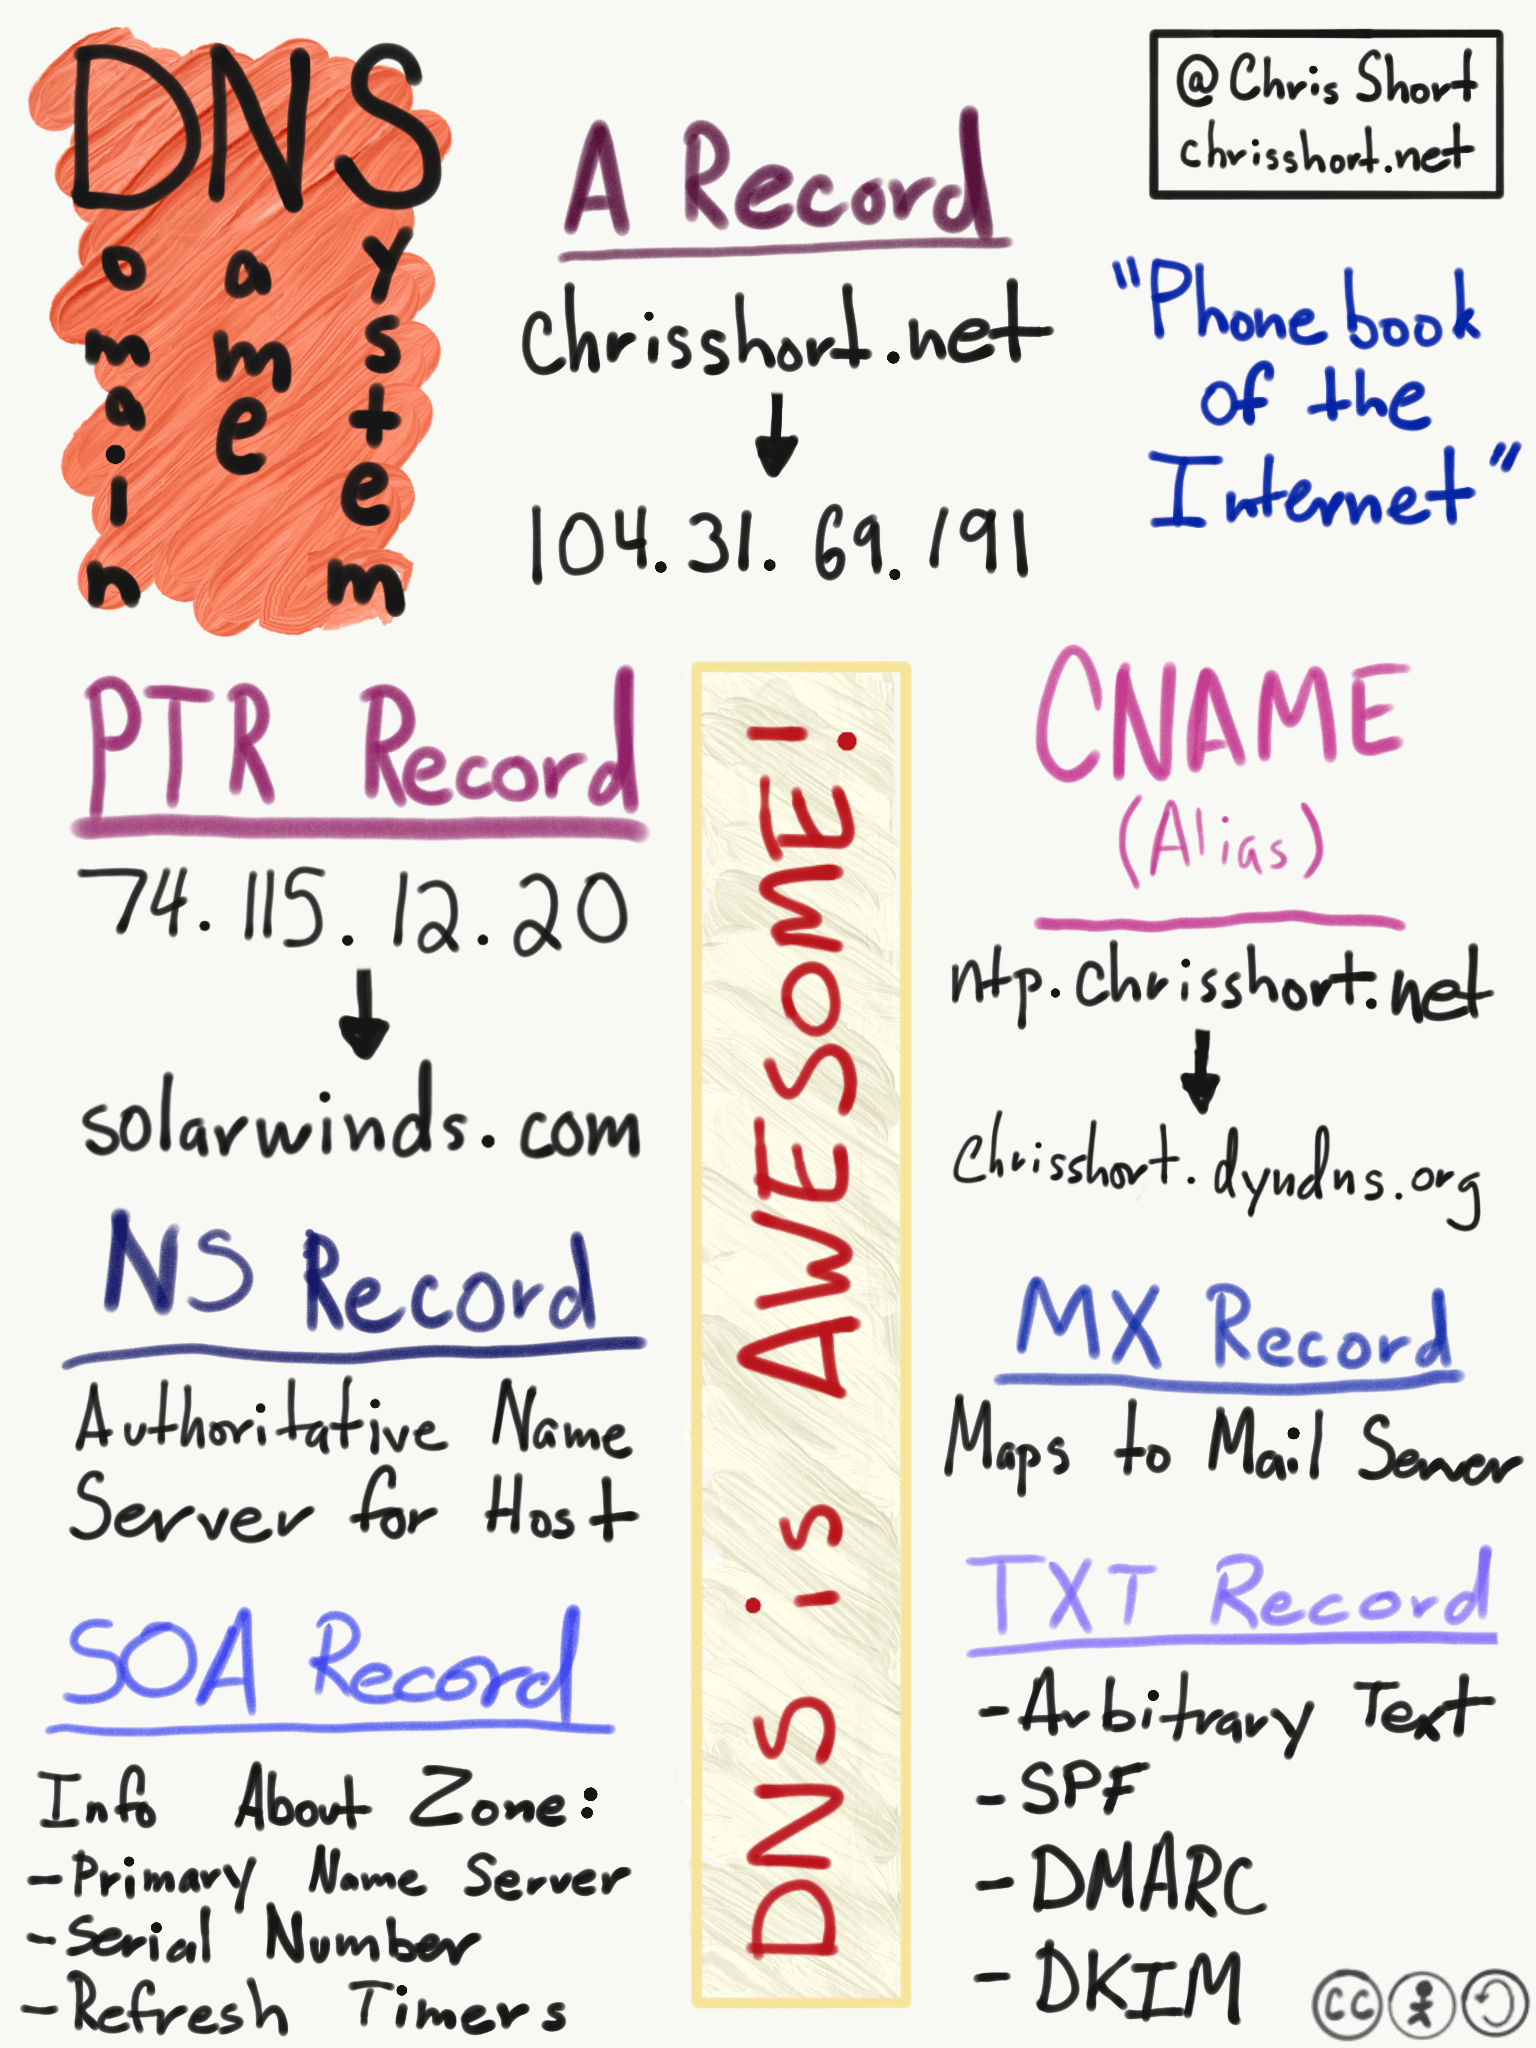 DNS
Domain Name System
@Chris Short
chrisshort.net
A Record
chrisshort.net
104.31.69.191
"Phonebook
of the
Internet"
PTR Record
74.115.12.20
solarwinds.com
DNS is AWESOME!
CNAME
(Alias)
ntp.chrisshort.net
chrisshort.dyndns.org
NS Record
Authoritative Name
Server for Host
MX Record
Maps to Mail Server
SOA Record
Info About Zone:
- Primary Name Server
- Serial Number
- Refresh Timers
TXT Record
- Arbitrary Text
- SPF
- DMARC
- DKIM
cc